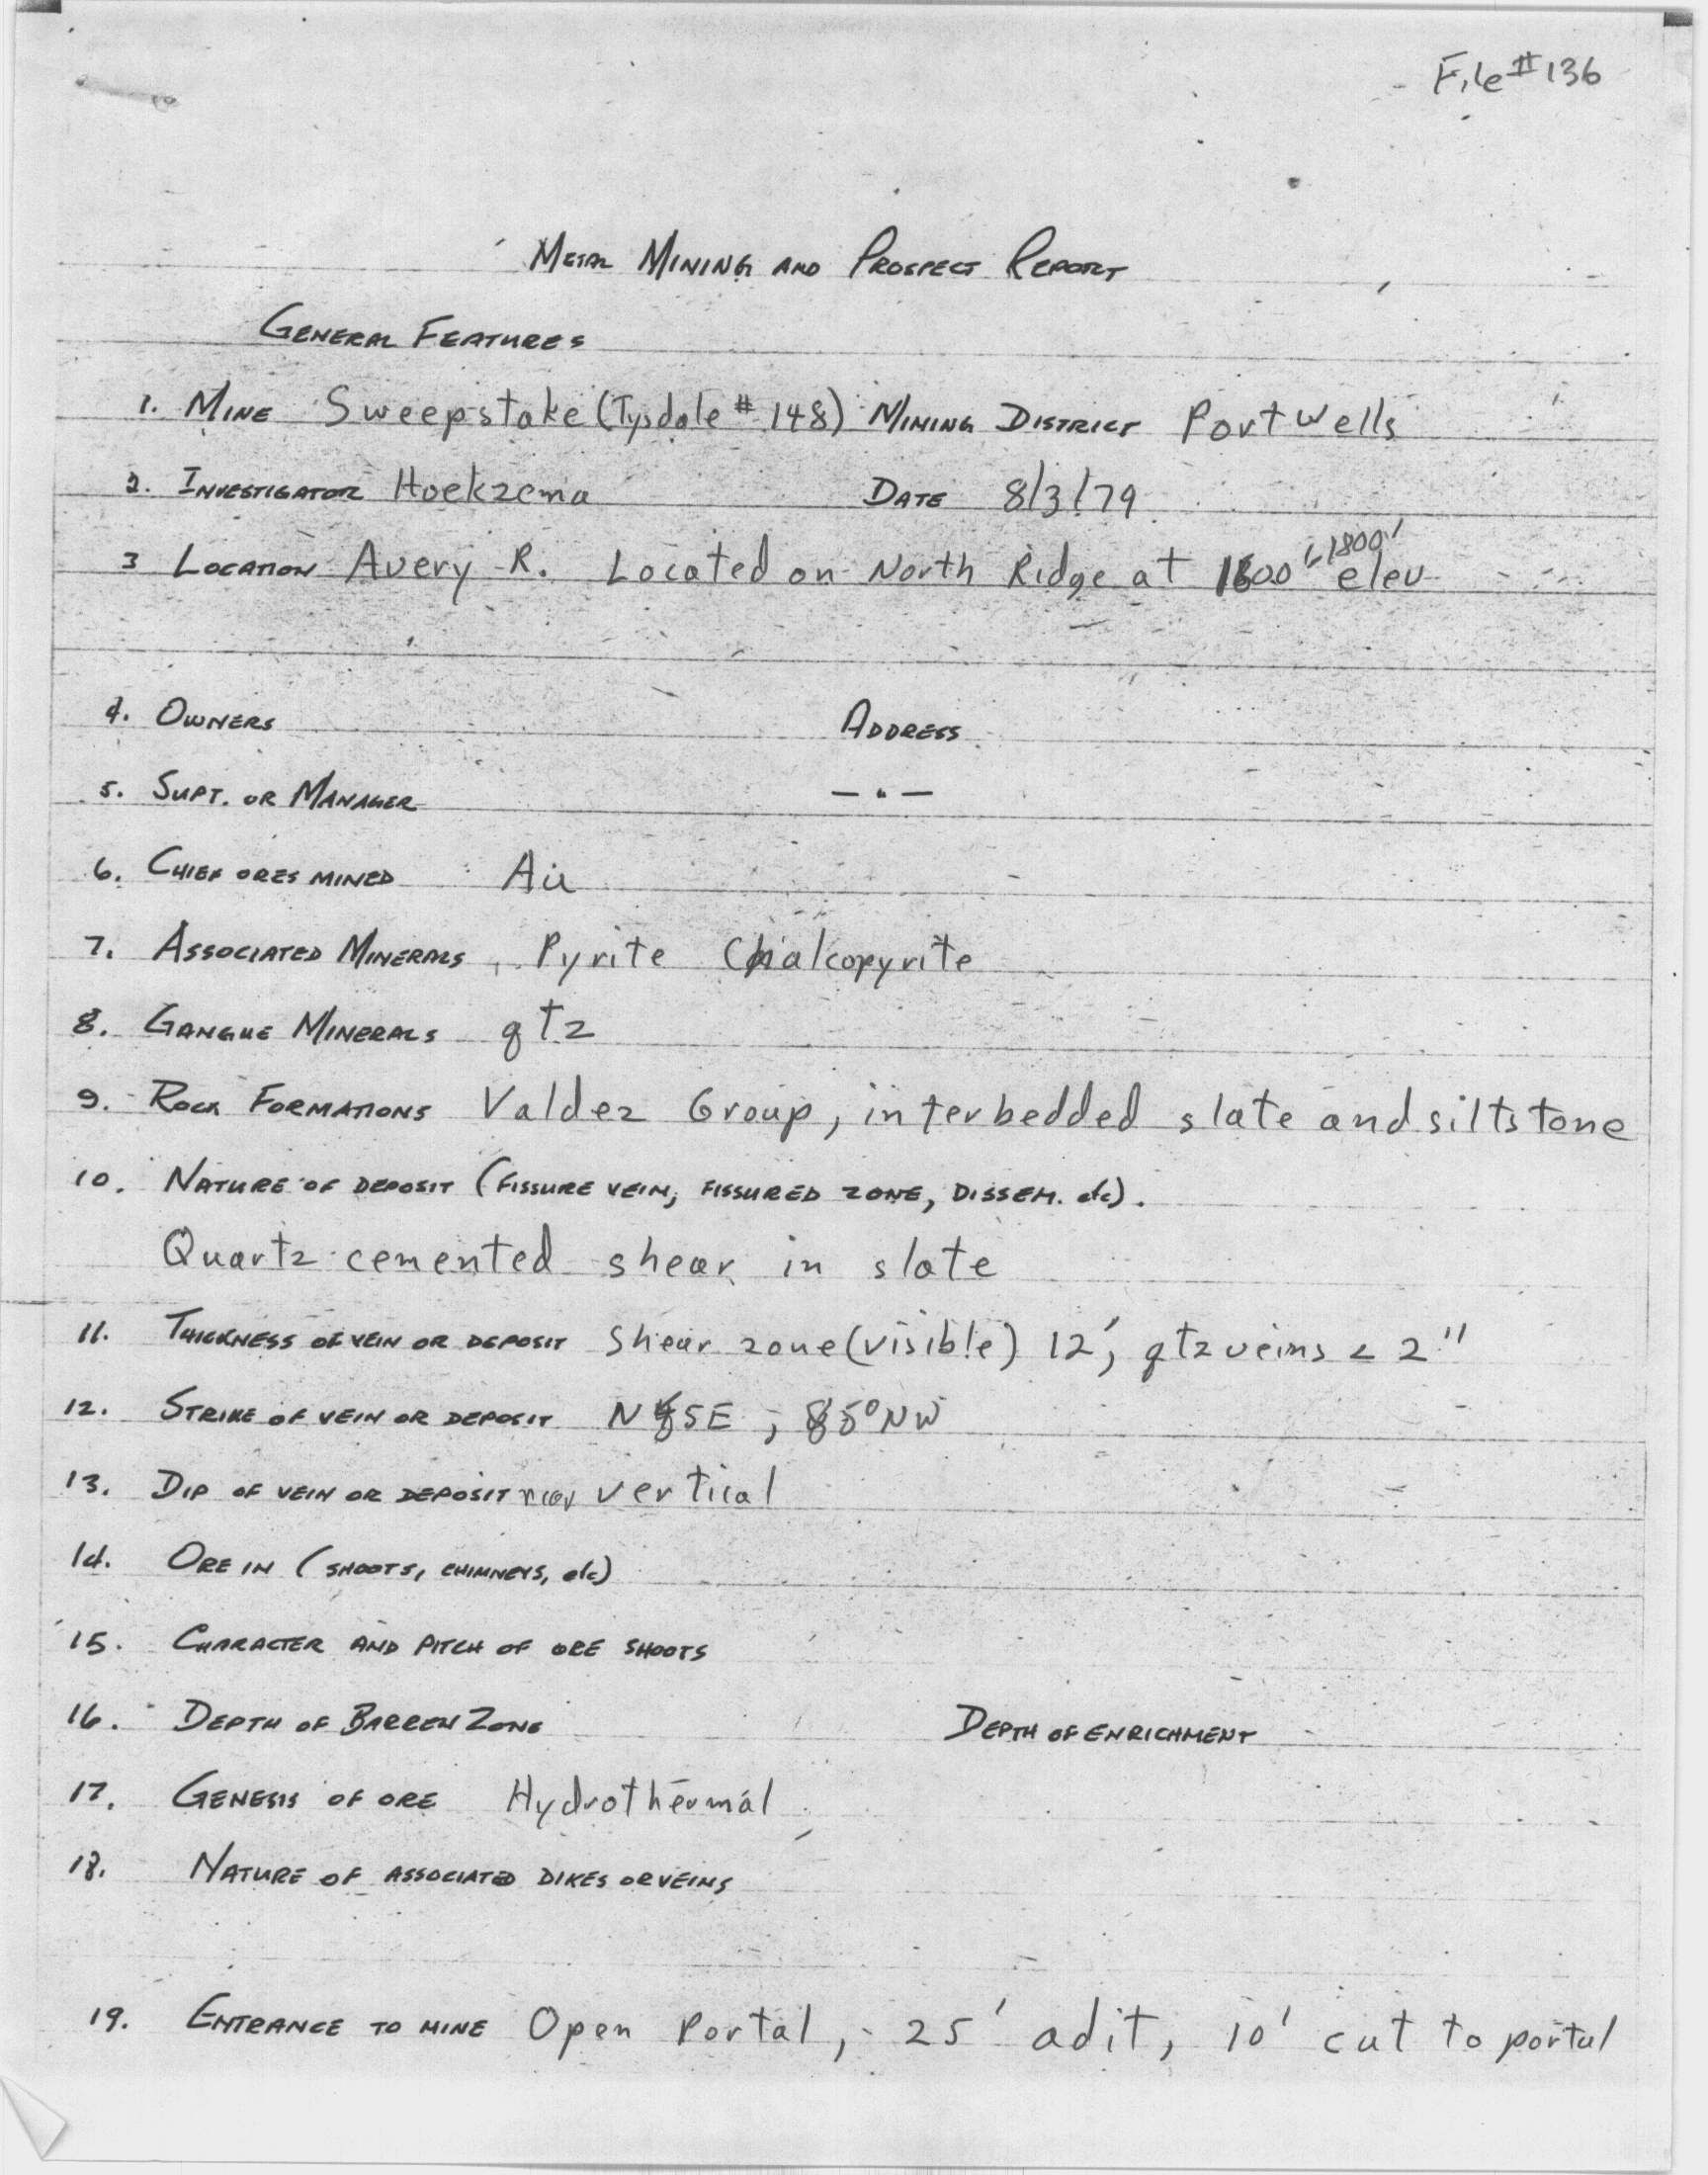 File # 136
METAL MINING AND PROSPECT REPORT
GENERAL FEATURES
1. MINE Sweepstake (Tysdale # 148) MINING DISTRICT Port Wells
2. INVESTIGATOR Hoekzema DATE 8/3/79
1800'
3 LOCATION Avery R. Located on North Ridge at elev
4. OWNERS ADDRESS
5. SUPT. OR MANAGER — " —
6. CHIEF ORES MINED Au
7. ASSOCIATED MINERALS, Pyrite Chalcopyrite
8. GANGUE MINERALS qtz
9. ROCK FORMATIONS Valdez Group, interbedded slate and siltstone
10. NATURE OF DEPOSIT (FISSURE VEIN, FISSURED ZONE, DISSEM. etc).
Quartz cemented shear in slate
11. THICKNESS OF VEIN OR DEPOSIT Shear zone (visible) 12', qtz veins < 2"
12. STRIKE OF VEIN OR DEPOSIT ; 85° NW
13. DIP OF VEIN OR DEPOSIT near vertical
14. ORE IN (SHOOTS, CHIMNEYS, etc)
15. CHARACTER AND PITCH OF ORE SHOOTS
16. DEPTH OF BARREN ZONE DEPTH OF ENRICHMENT
17. GENESIS OF ORE Hydrothermal
18. NATURE OF ASSOCIATED DIKES OR VEINS
19. ENTRANCE TO MINE Open Portal, 25' adit, 10' cut to portal